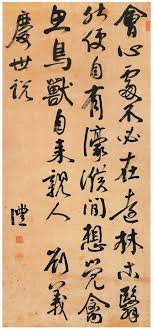 會心處不必在遠林木翳
然便自有濠濮間想覺禽
魚鳥獸自來親人 劉義
慶世説